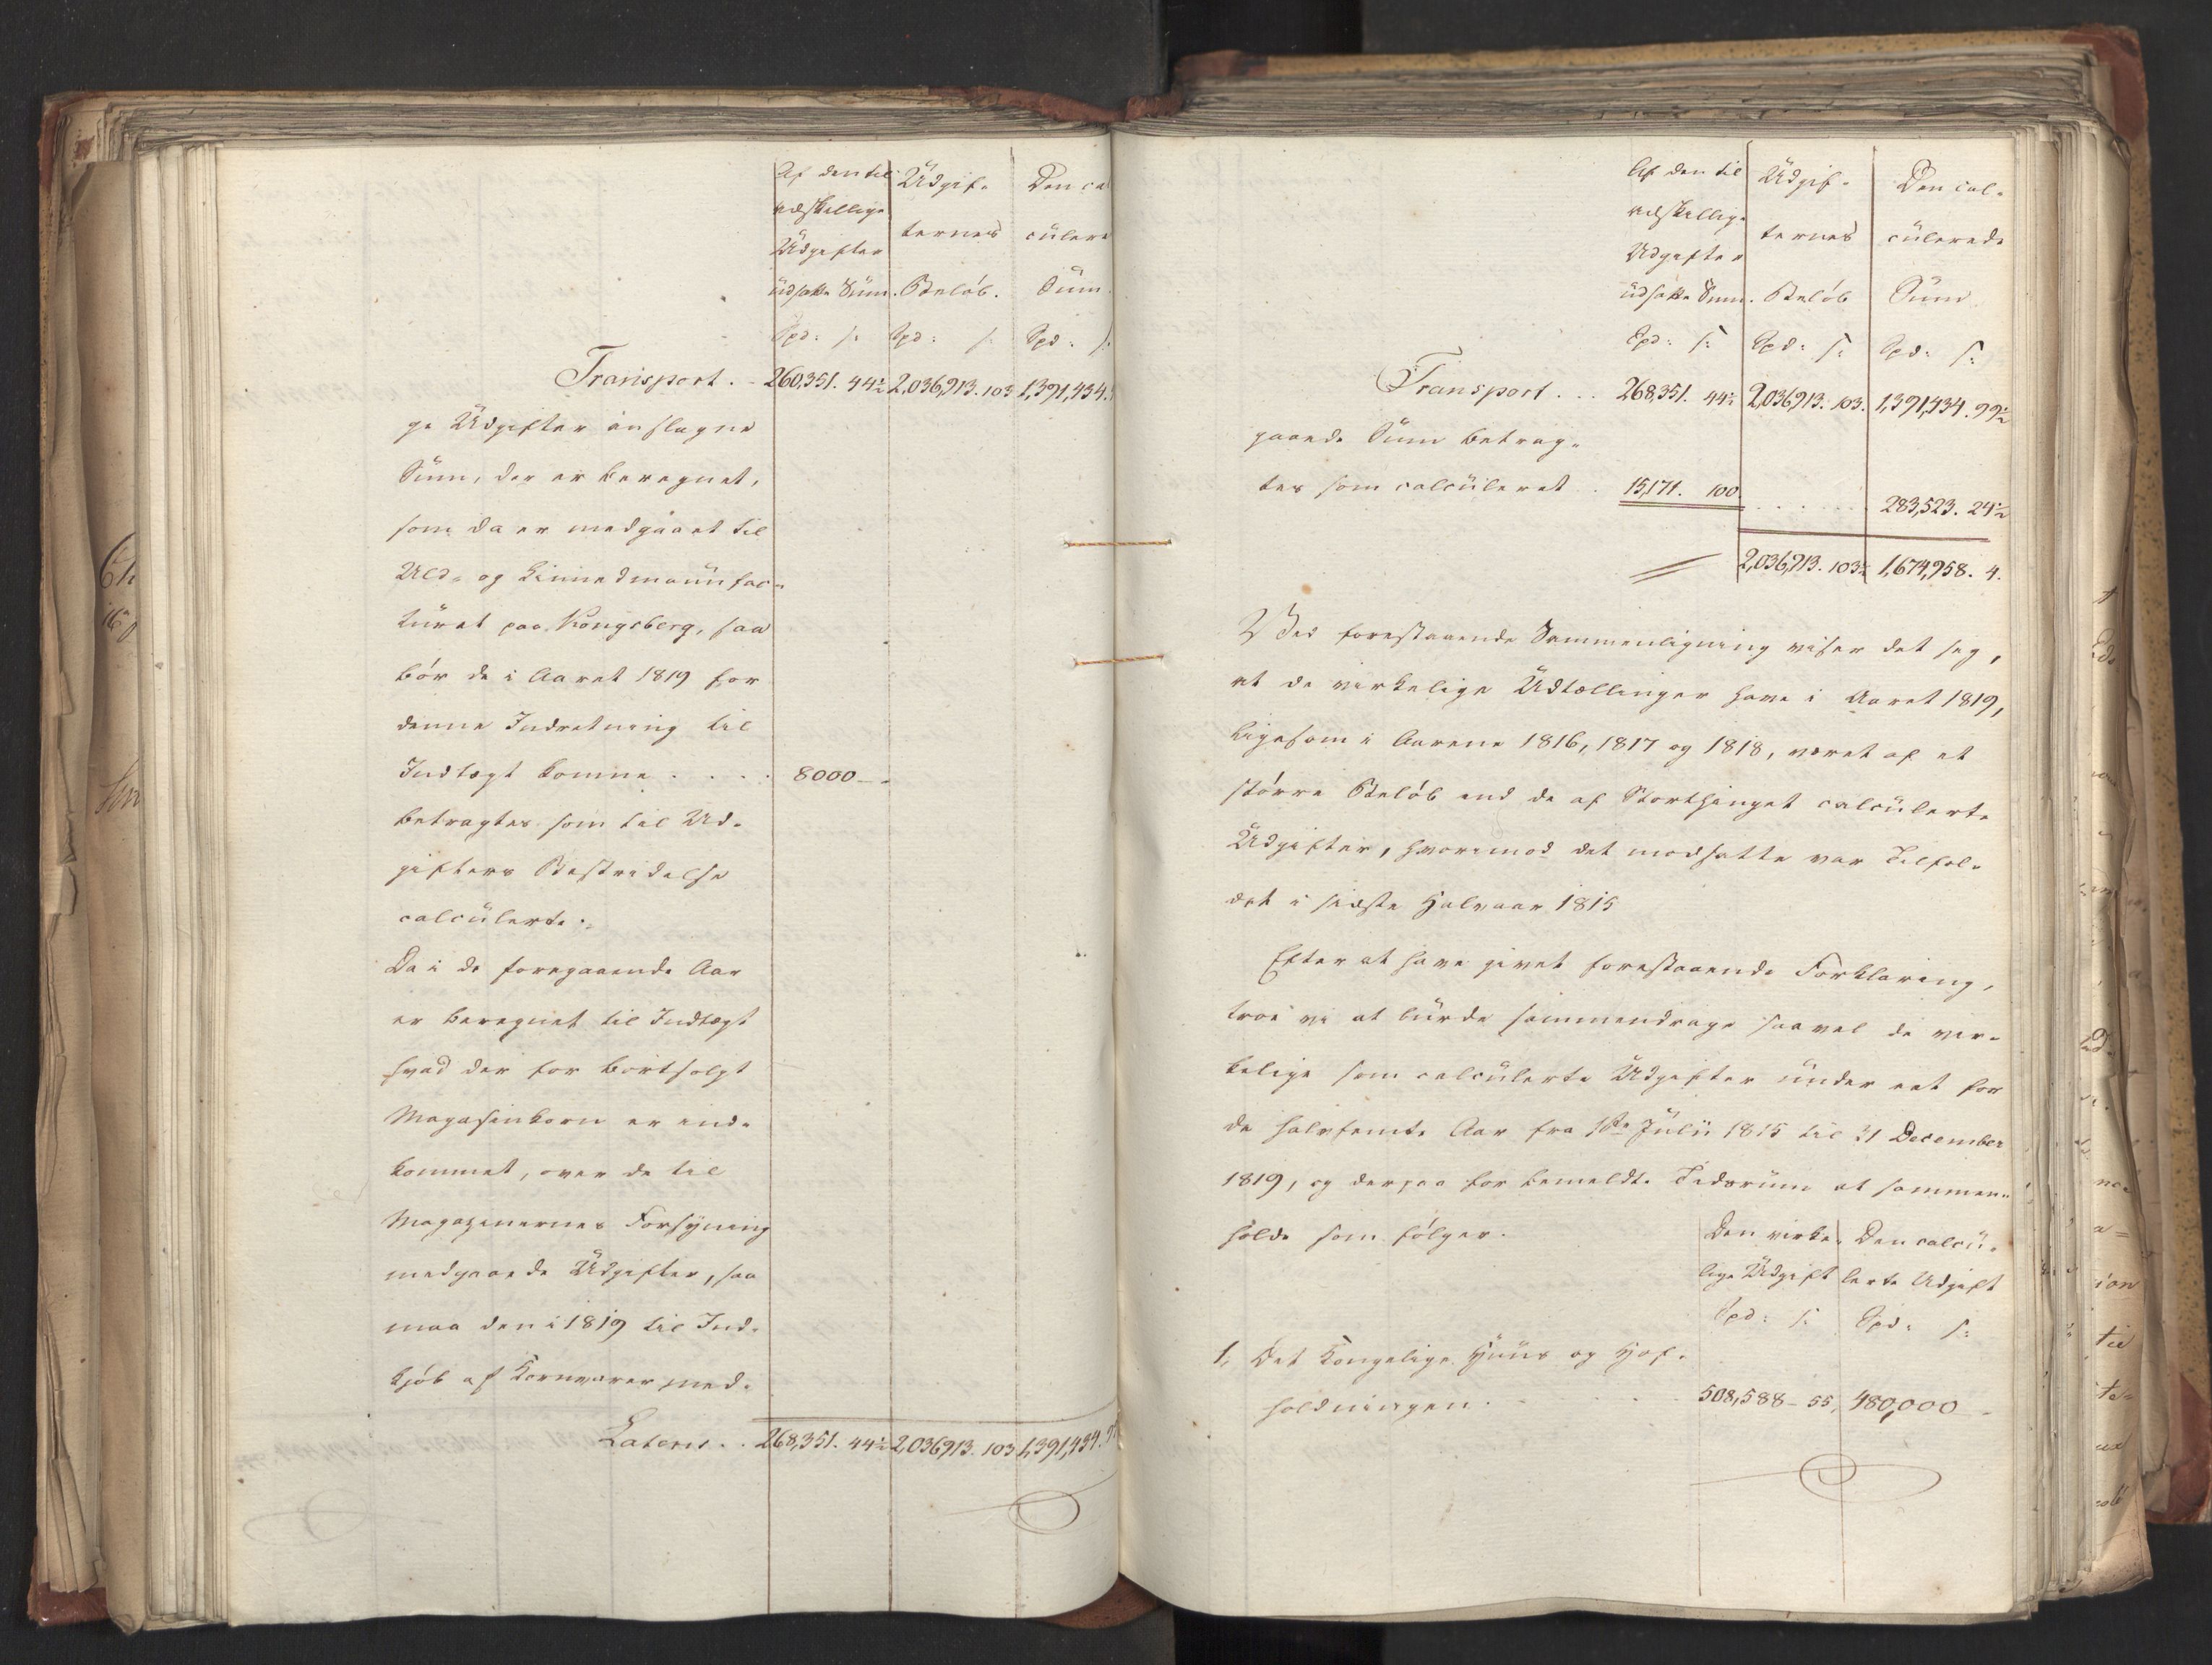 Af den til
uvskillige
Udgifter
udsatte Sum.
Spd: s:
Udgif-
ternes
Beløb.
Spd: s:
Den cal
culere
Sum.
Spd: s:
Transport . - 260,351. 44½ 2,036,913. 103 1,391,434.
ge Udgifter anslagne
Sum, der er beregnet,
som da er medgaaet til
Uld- og Linnedmanufac-
turet paa Kongsberg, saa
bör de i Aaret 1819 for
denne Indretning til
Indtægt komne . . . . 8000 - -
betragtes som til Ud-
gifters Bestridelse
calculerte.
Da i de foregaaende Aar
er beregnet til Indtægt
hvad der for bortsolgt
Magasinkorn er ind-
kommet, over de til
Magazinernes Forsyning
medgaaede Udgifter, saa
maa den i 1819 til Ind-
kjöb af Kornvarer med-
Lateris . . 268,351. 44½ 2,036,913. 103 1,391,434. 9
Af den til
adskillige
Udgifter
udsatte Sum.
Spd: s:
Udgif-
ternes
Beløb
Spd: s:
Den cal-
culerede
Sum
Spd: s:
Transport . . . 268,351. 44½ 2,036,913. 103. 1,391,434. 99½
gaaende Sum betrag-
tes som calculeret . 15,171. 100. . . . . . 283,523. 24½
2,036,913. 103½ 1,674,958. 4.
Ved forestaaende Sammenligning viser det sig,
at de virkelige Udtællinger have i Aaret 1819,
ligesom i Aarene 1816, 1817 og 1818, været af et
större Belöb end de af Storthinget calculerte
Udgifter, hvorimod det modsatte var Tilfæl-
det i sidste Halvaar 1815
Efter at have givet forestaaende Forklaring,
troe vi at burde sammendrage saavel de vir-
kelige som calculerte Udgifter under eet for
de halvfemte Aar fra 1ste Julii 1815 til 31 December
1819, og derpaa for bemeldte Tidsrum at sammen-
holde som fölger.
Den virke-
lige Udgift
Spd: s:
Den calcu-
lerte Udgift
Spd: s:
1, Det Kongelige Huus og Hof-
holdningen. . . 508,588 - 55, 480,000 -